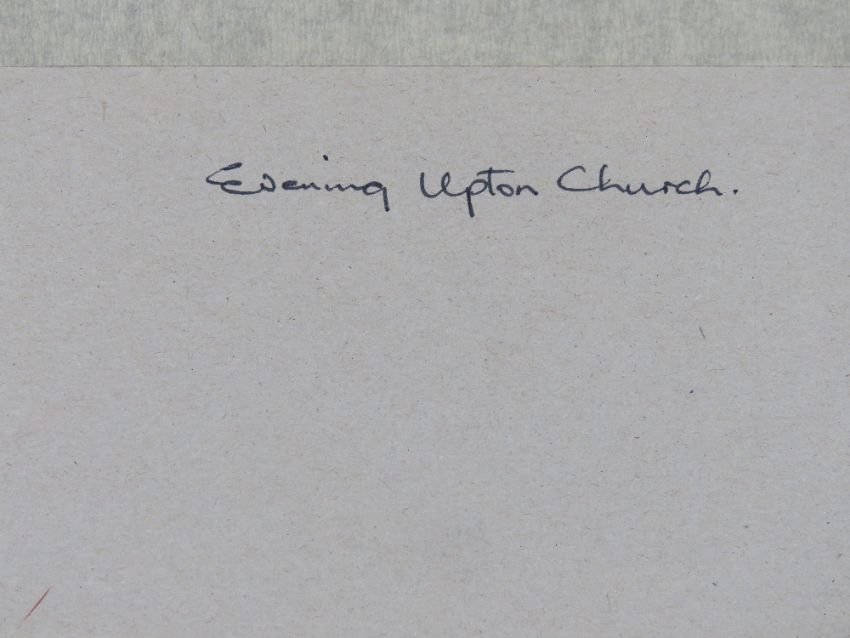 Evening Upton Church.